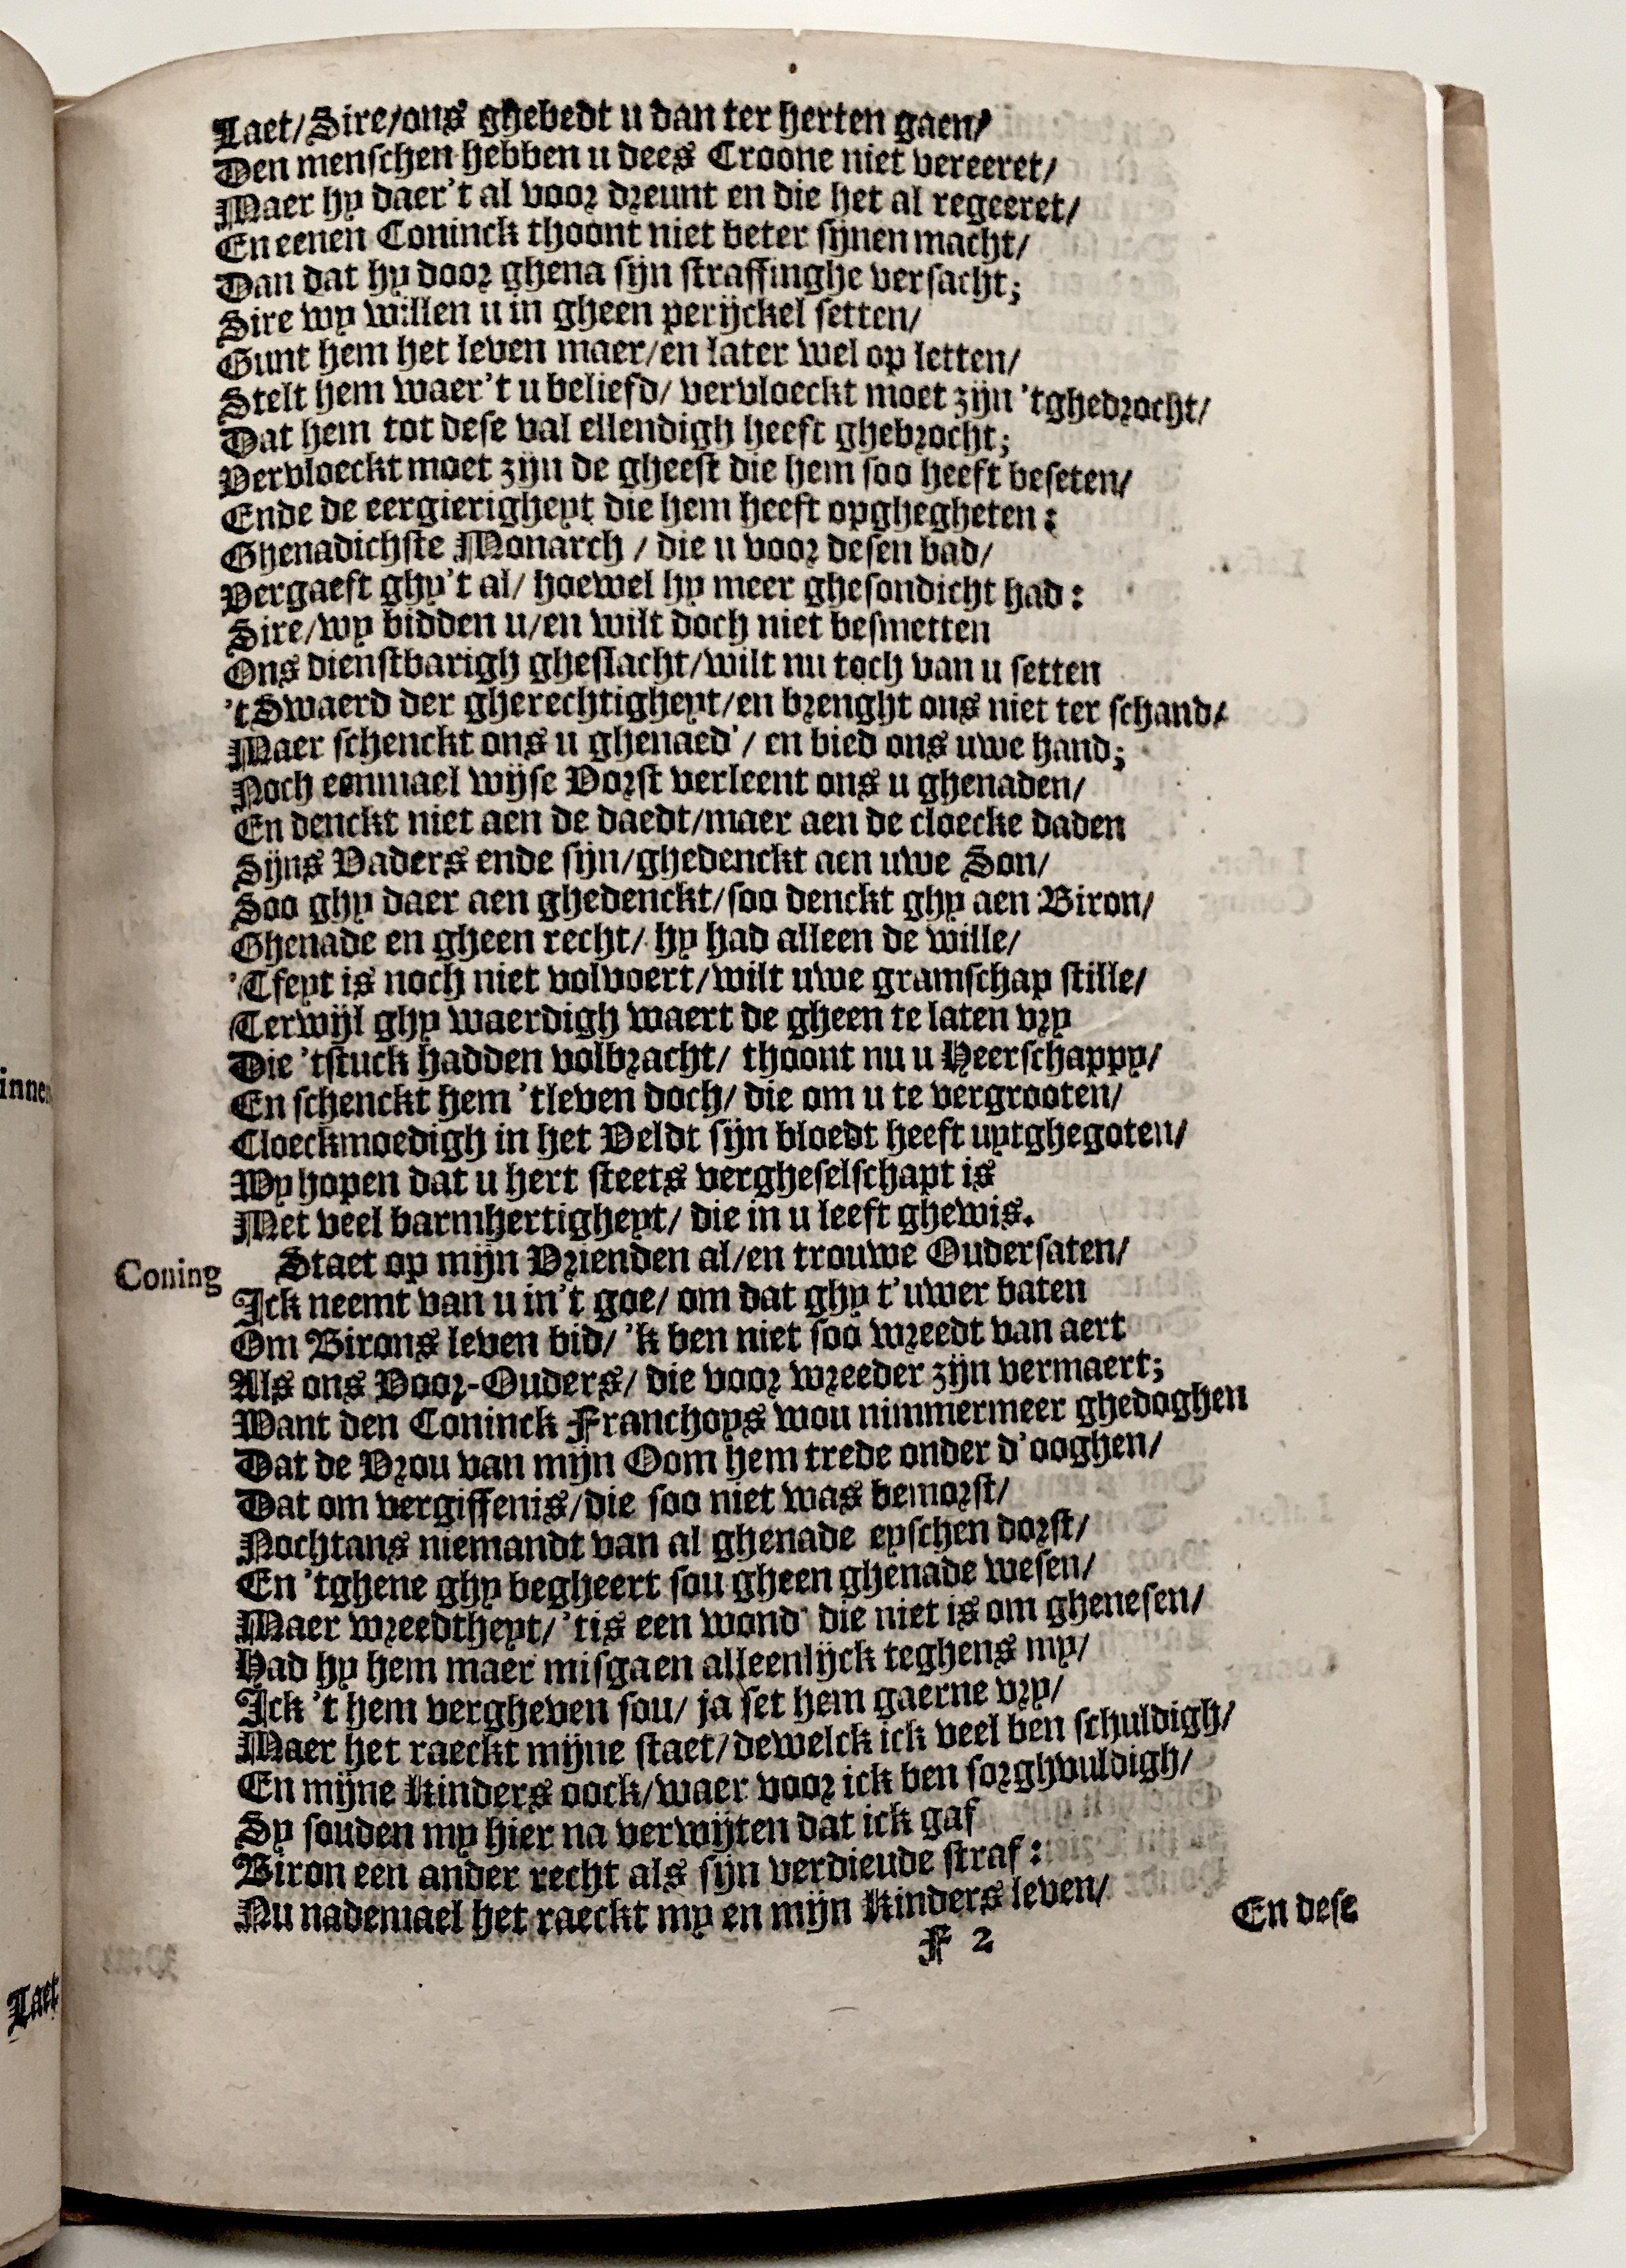 Laet/Sire/ons ghebedt u dan ter herten gaen/
Den menschen hebben u dees Croone niet vereeret/
Maer hy daer't al voor dreunt en die het al regeeret/
En eenen Coninck thoont niet beter sijnen macht/
Dan dat hy door ghena sijn straffinghe versacht;
Sire wy willen u in gheen perijckel setten/
Gunt hem het leven maer/en later wel op letten/
Stelt hem waer't u beliefd/ vervloeckt moet zijn 'tghedrocht/
Dat hem tot dese val ellendigh heeft ghebrocht;
Vervloeckt moet zijn de gheest die hem soo heeft beseten/
Ende de eergierigheyt die hem heeft opghegheten:
Ghenadichste Monarch / die u voor desen bad/
Vergaeft ghy't al/ hoewel hy meer ghesondicht had:
Sire/wy bidden u/en wilt doch niet besmetten
Ons dienstbarigh gheslacht/wilt nu toch van u setten
't Swaerd der gherechtigheyt/en brenght ons niet ter schand/
Maer schenckt ons u ghenaed'/ en bied ons uwe hand;
Noch eenmael wijse Vorst verleent ons u ghenaden/
En denckt niet aen de daedt/maer aen de cloecke daden
Sijns Vaders ende sijn/ghedenckt aen uwe Son/
Soo ghy daer aen ghedenckt/soo denckt ghy aen Biron/
Ghenade en gheen recht/ hy had alleen de wille/
'Tfeyt is noch niet volvoert/wilt uwe gramschap stille/
Terwijl ghy waerdigh waert de gheen te laten vry
Die 'tstuck hadden volbracht/ thoont nu u Heerschappy/
En schenckt hem 'tleven doch/ die om u te vergrooten/
Cloeckmoedigh in het Veldt sijn bloedt heeft uytghegoten/
Wy hopen dat u hert steets vergheselschapt is
Met veel barmhertigheyt/ die in u leeft ghewis.
Coning Staet op mijn Vrienden al/en trouwe Oudersaten/
Ick neemt van u in't goe/ om dat ghy t'uwer baten
Om Birons leven bid/ 'k ben niet soo wreedt van aert
Als ons Voor-Ouders/ die voor wreeder zijn vermaert;
Want den Coninck Franchoys wou nimmermeer ghedoghen
Dat de Vrou van mijn Oom hem trede onder d'ooghen/
Dat om vergiffenis/die soo niet was bemorst/
Nochtans niemandt van al ghenade eyschen dorst/
En 'tghene ghy begheert sou gheen ghenade wesen/
Maer wreedtheyt/ 'tis een wond' die niet is om ghenesen/
Had hy hem maer misgaen alleenlijck teghens my/
Ick 't hem vergheven sou/ ja set hem gaerne vry/
Maer het raeckt mijne staet/dewelck ick veel ben schuldigh/
En mijne kinders oock/waer voor ick ben sorghvuldigh/
Sy souden my hier na verwijten dat ick gaf
Biron een ander recht als sijn verdiende straf:
Nu nademael het raeckt my en mijn kinders leven/
F 2
En dese
innen
Laet